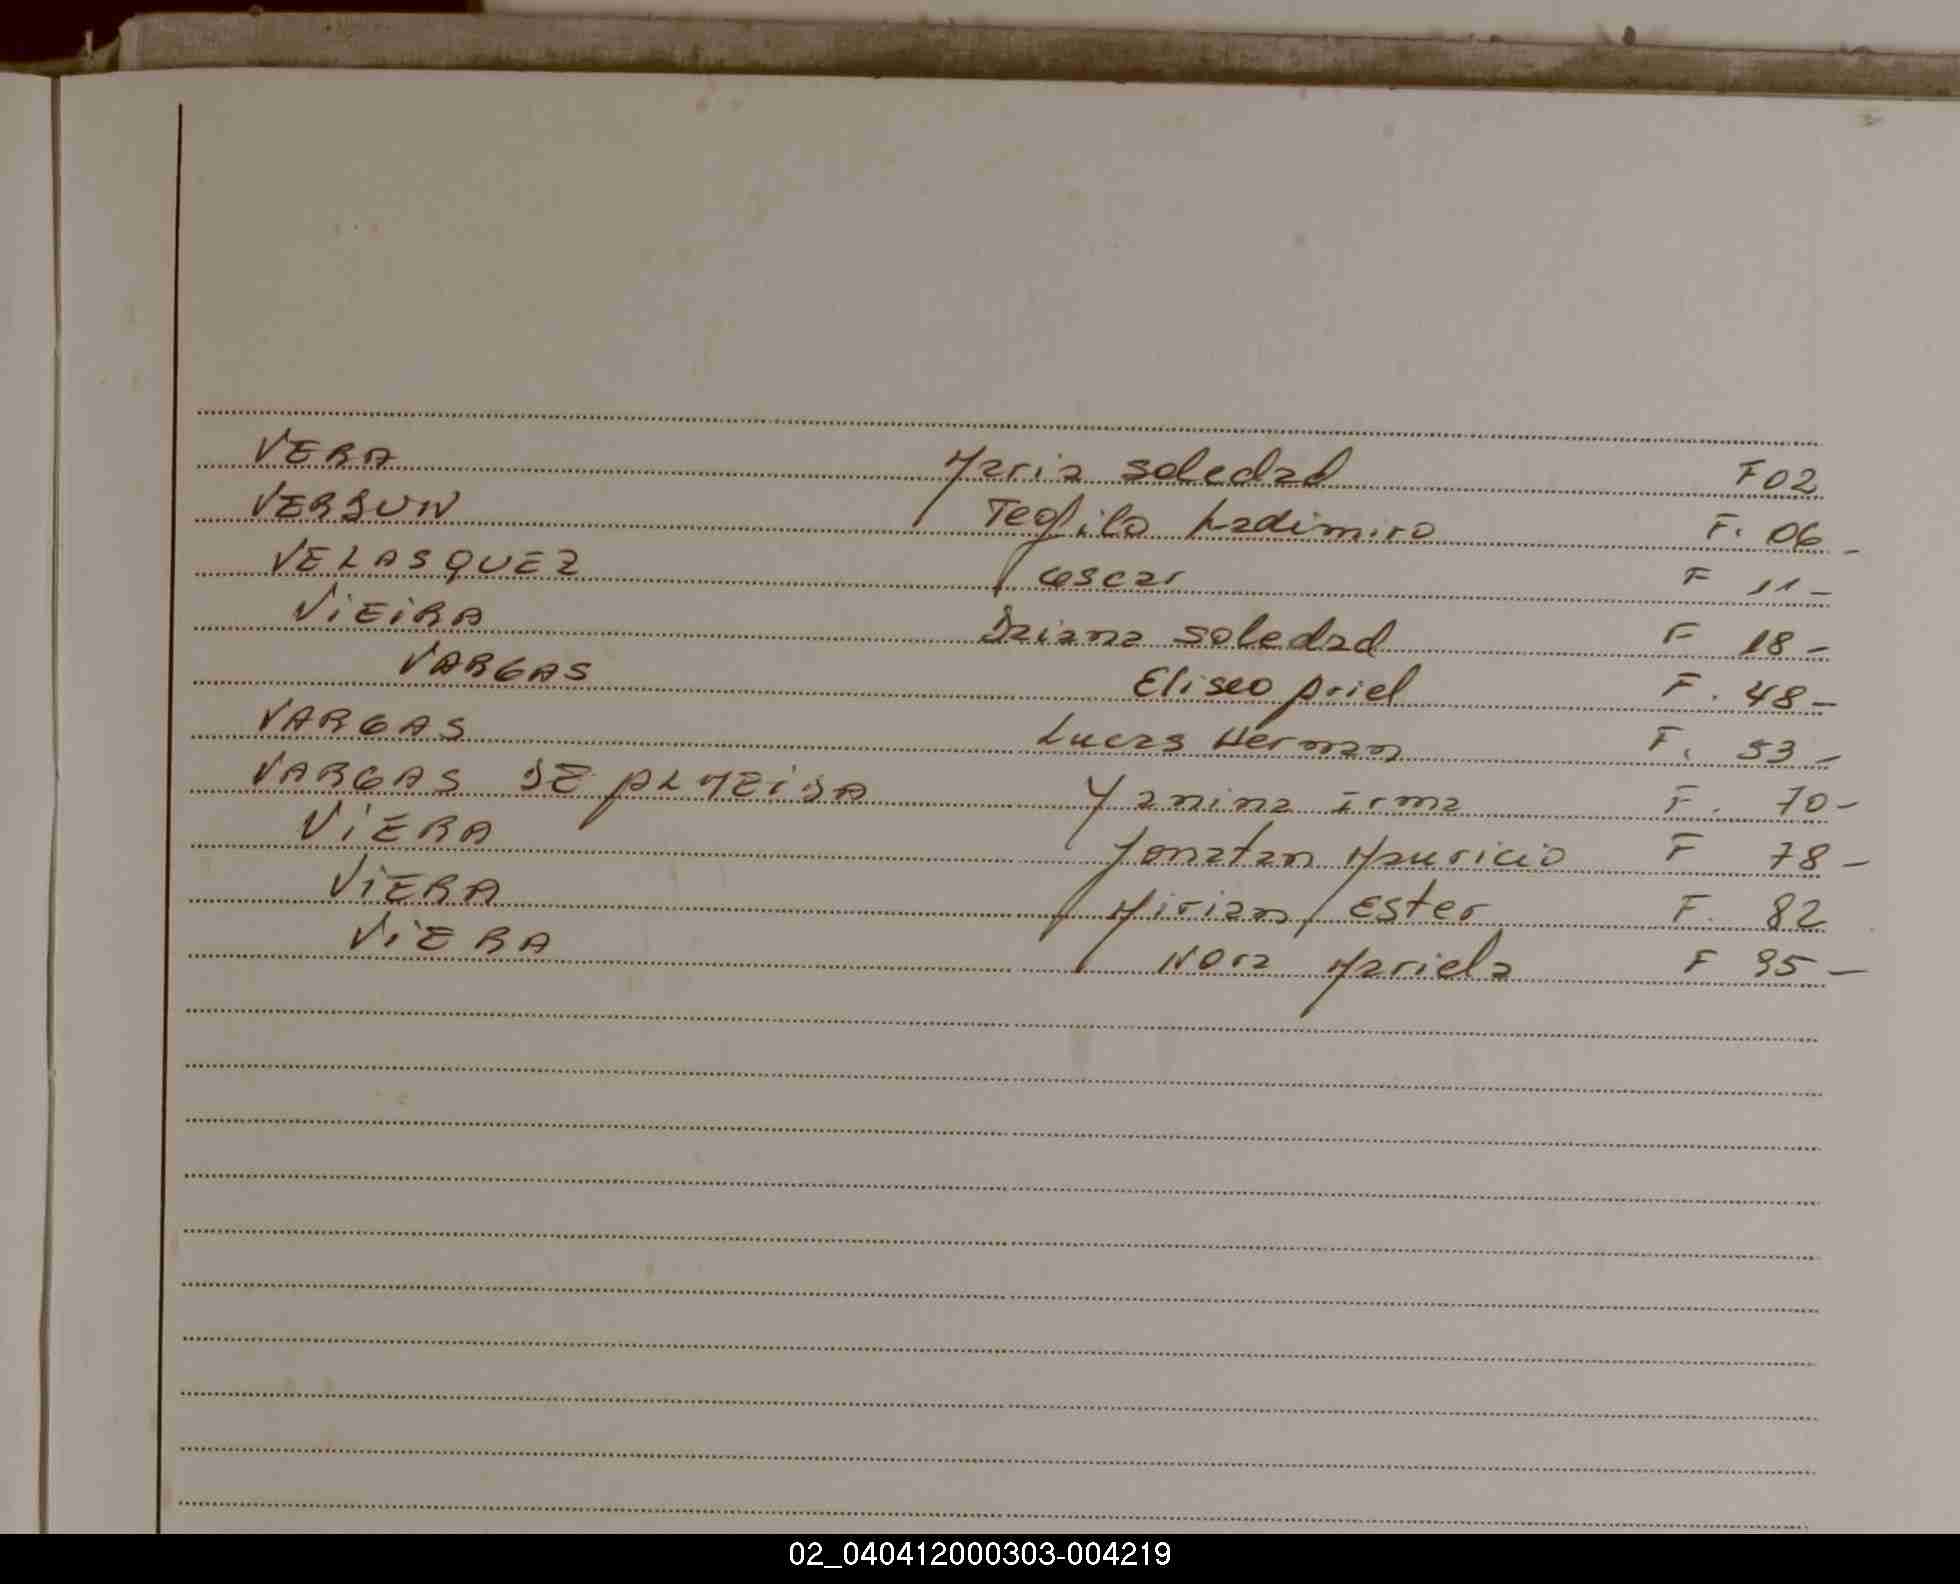 VERA Maria Soledad F 02
VERDUN Teofilo Ladimiro F. 06 -
VELASQUEZ Oscar F 11 -
ViEiRA Daiana Soledad F 18 -
VARGAS Eliseo Ariel F. 48 -
VARGAS Lucas Herman F. 53 -
VARGAS DE ALMEiDA Yanina Irma F. 70 -
ViERA Jonatan Mauricio F 78 -
ViERA Mirian Ester F. 82
ViERA Nora Mariela F 95 -
02_040412000303-004219